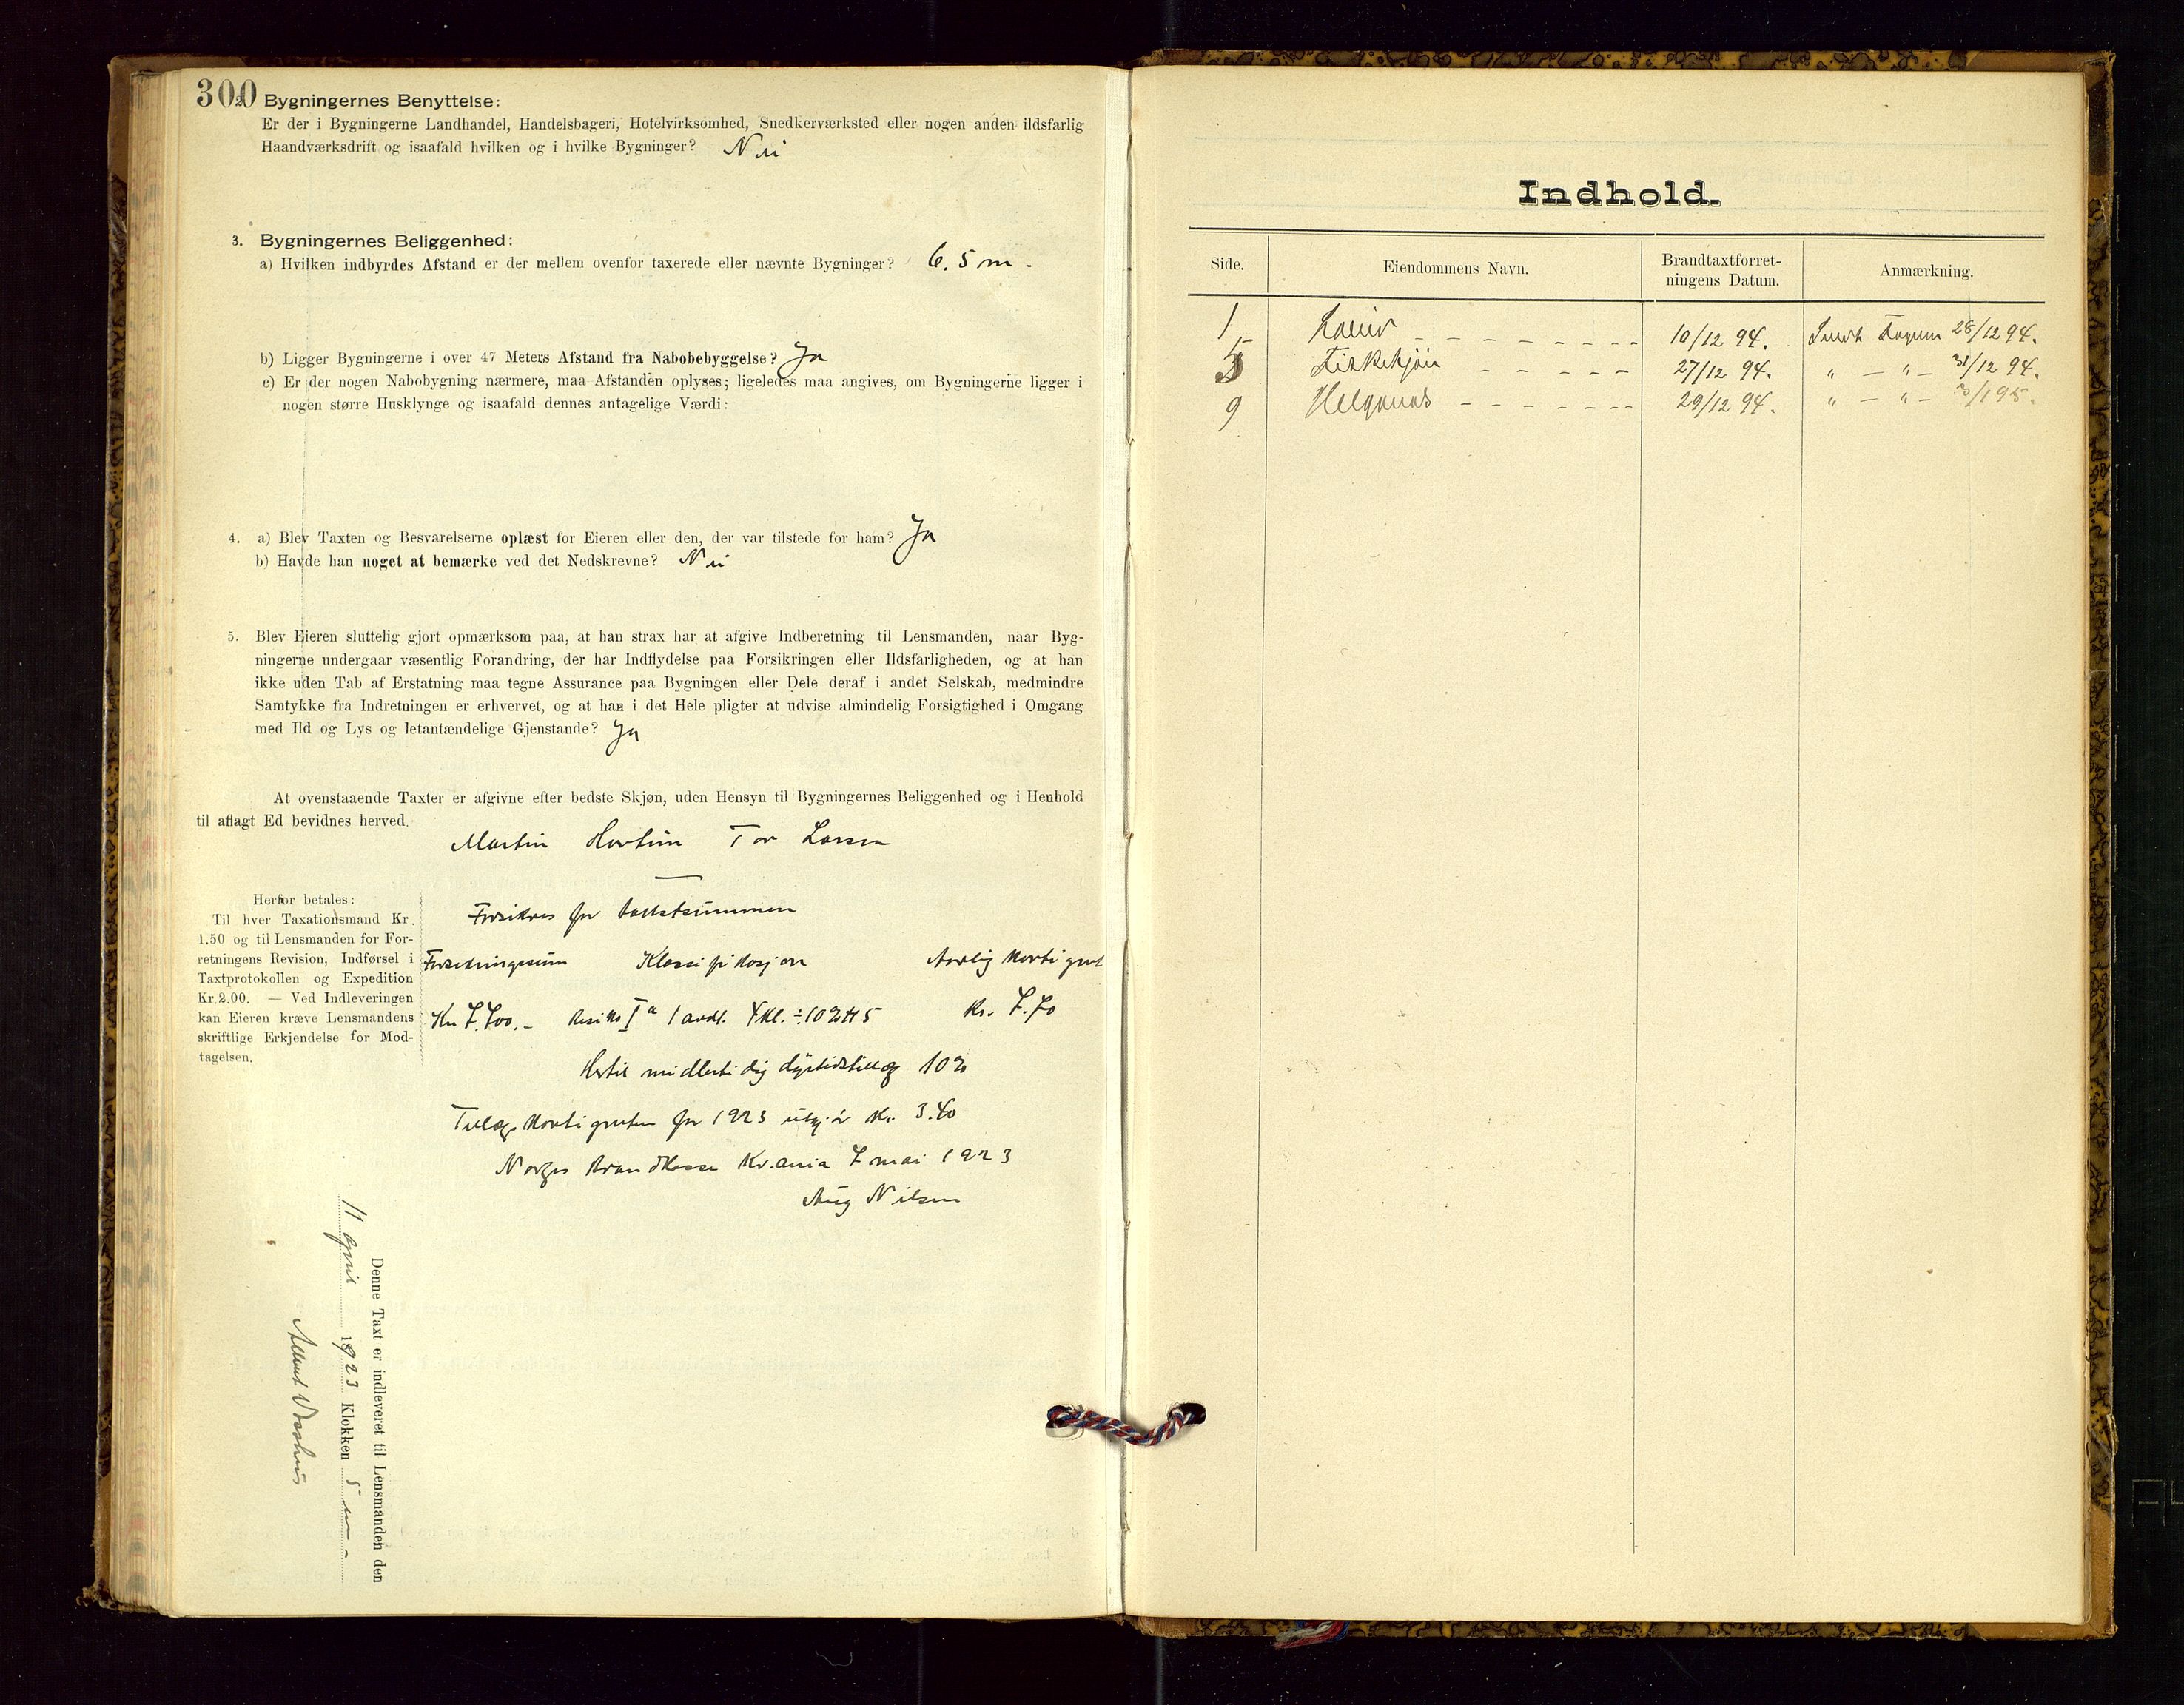 300
2. Bygningernes Benyttelse:
Er der i Bygningerne Landhandel, Handelsbageri, Hotelvirksomhed, Snedkerværksted eller nogen anden ildsfarlig
Haandværksdrift og isaafald hvilken og i hvilke Bygninger? Nei
3. Bygningernes Beliggenhed:
a) Hvilken indbyrdes Afstand er der mellem ovenfor taxerede eller nævnte Bygninger? 6.5 m.
b) Ligger Bygningerne i over 47 Meters Afstand fra Nabobebyggelse? Ja
c) Er der nogen Nabobygning nærmere, maa Afstanden oplyses; ligeledes maa angives, om Bygningerne ligger i
nogen større Husklynge og isaafald dennes antagelige Værdi:
4. a) Blev Taxten og Besvarelserne oplæst for Eieren eller den, der var tilstede for ham? Ja
b) Havde han noget at bemærke ved det Nedskrevne? Nei
5. Blev Eieren sluttelig gjort opmærksom paa, at han strax har at afgive Indberetning til Lensmanden, naar Byg-
ningerne undergaar væsentlig Forandring, der har Indflydelse paa Forsikringen eller Ildsfarligheden, og at han
ikke uden Tab af Erstatning maa tegne Assurance paa Bygningen eller Dele deraf i andet Selskab, medmindre
Samtykke fra Indretningen er erhvervet, og at han i det Hele pligter at udvise almindelig Forsigtighed i Omgang
med Ild og Lys og letantændelige Gjenstande? Ja
At ovenstaaende Taxter er afgivne efter bedste Skjøn, uden Hensyn til Bygningernes Beliggenhed og i Henhold
til aflagt Ed bevidnes herved.
Martin Hortun Tor Larsen
Herfor betales:
Til hver Taxationsmand Kr.
1.50 og til Lensmanden for For-
retningens Revision, Indførsel i
Taxtprotokollen og Expedition
Kr. 2.00. — Ved Indleveringen
kan Eieren kræve Lensmandens
skriftlige Erkjendelse for Mod-
tagelsen.
Forsikres for takstsummen
Forsikringssum Klassifikasjon Aarlig kontigent
Kr. 7.700.- Risiko I a 1 avdl. 4 kl. ÷ 10% H 5 Kr. 7.70
Hertil midlertidig dyrtidstillæg 10%
Tillægskontigenten for 1923 utgjør kr. 3.40
Norges Brandkasse Kr.ania 7 mai 1923
Aug Nilsen
Denne Taxt er indleveret til Lensmanden den
11 april 1923 Klokken 5
Indhold.
Side. Eiendommens Navn. Brandtaxtforret-
ningens Datum. Anmærkning.
1 10/12 94. 28/12 94.
5 27/12 94. " — " — 31/12 94.
9 Helganes 29/12 94. " — " — 3/1 95.